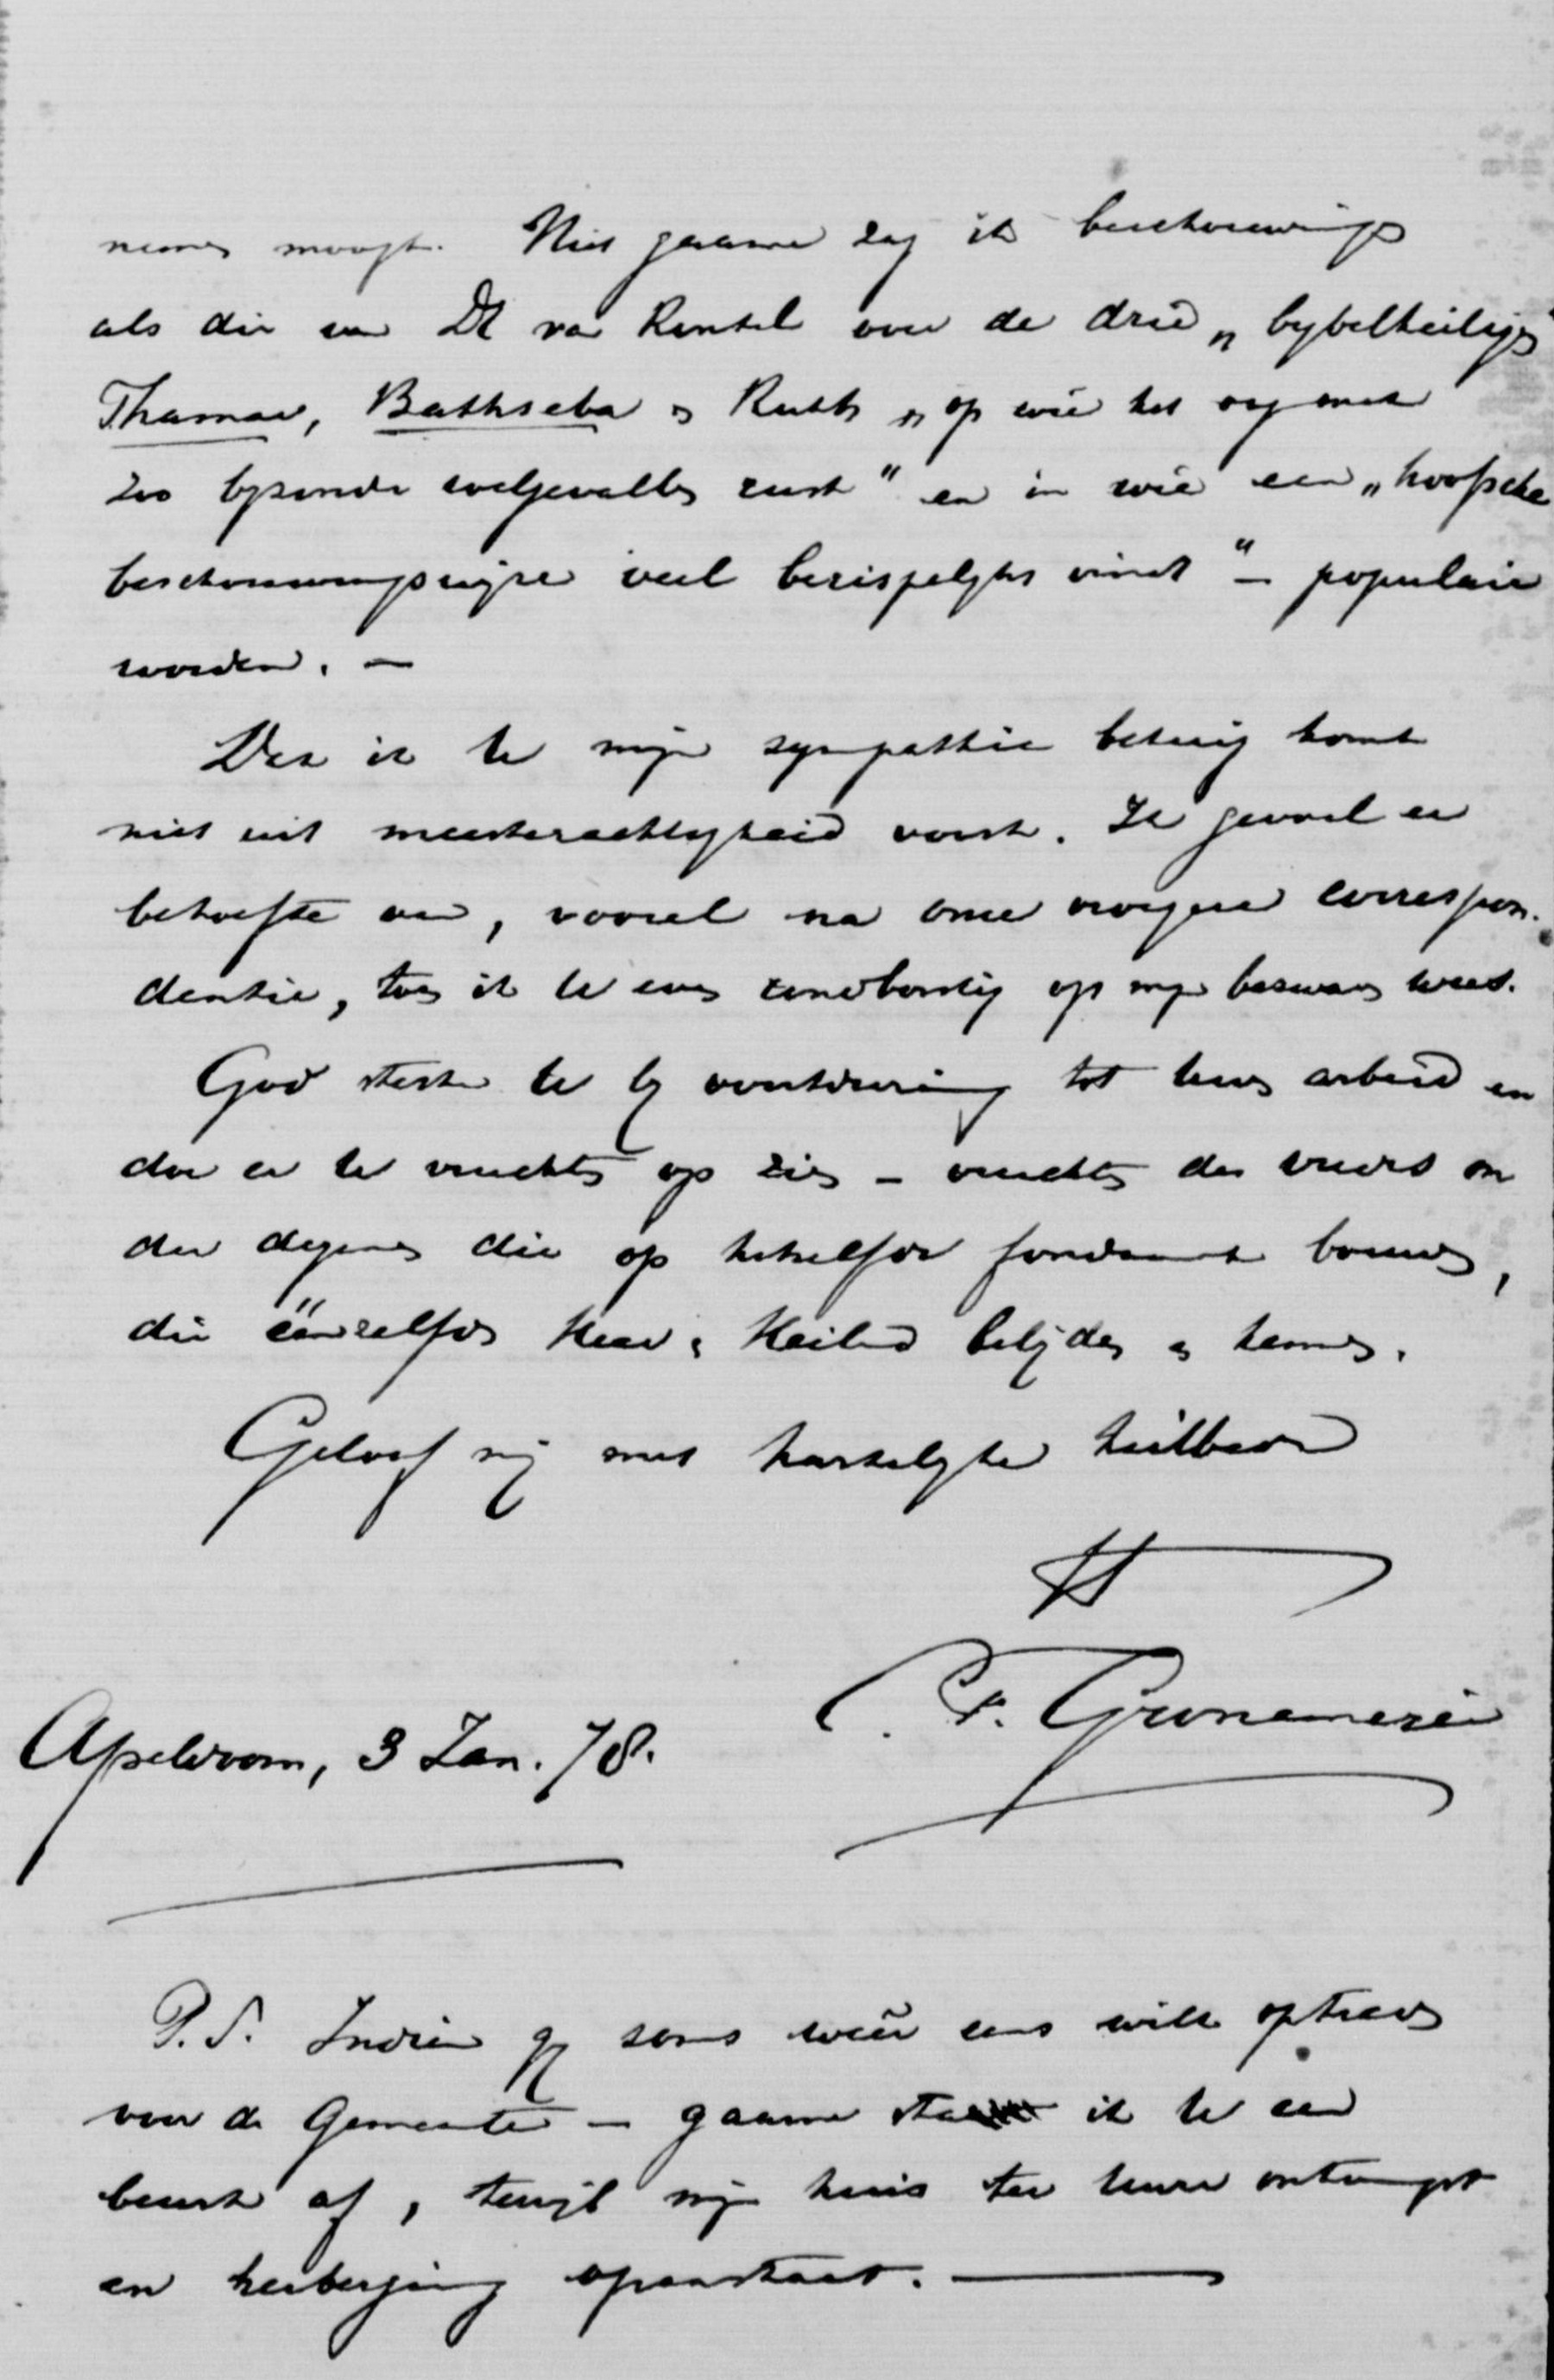 nemen moogt. Niet gaarne zag ik beschouwingen
als die van Dr van Ronkel over de drie „bybelheiligen"
Thamar, Bathseba en Ruth „op wie het oog met
zoo byzonder welgevallen rust" en in wie een „hoofsche
beschouwingswyze veel berispelyks vindt" – populair
worden. –
Dat ik U myn sympathie betuig komt
niet uit meesterachtigheid voort. Ik gevoel er
behoefte aan, vooral na onze vroegere correspon-
dentie, toen ik U even rondborstig op myn bezwaren wees.
God sterke U by voortduring tot Uwen arbeid en
doe er U vruchten op zien – vruchten des vredes on
der degenen die op hetzelfde fondament bouwen,
die éénzelfden Heer en Heiland belyden en kennen.
Geloof my met hartelyke heilbede
C. F. Gronemeyer
Apeldoorn, 3 Jan. 78.
P.S. Indien gy soms weêr eens wilt optreden
voor de Gemeente – gaarne sta ik U een
beurt af, terwijl myn huis ter Uwer ontvangst
en herberging openstaat. –